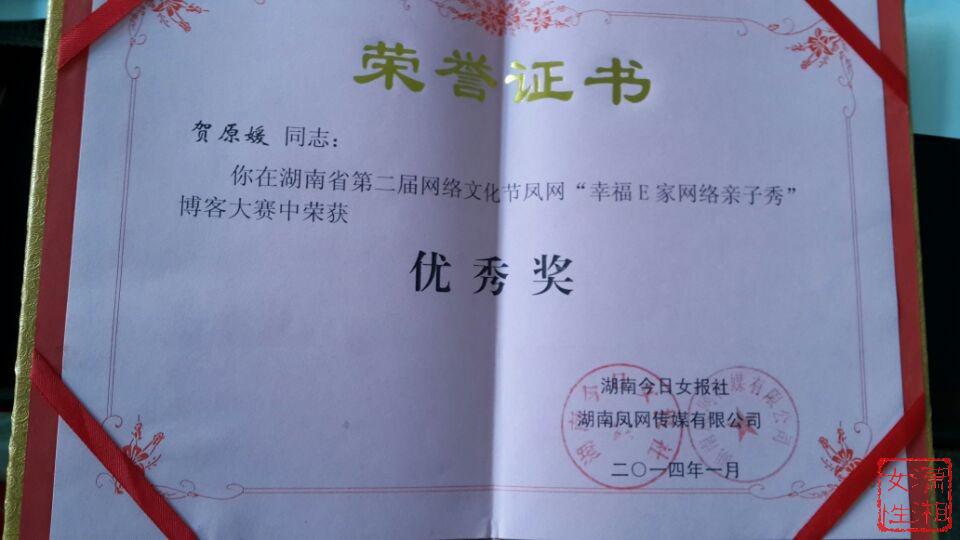 荣誉证书
贺原媛 同志：
你在湖南省第二届网络文化节凤网“幸福E家网络亲子秀”
博客大赛中荣获
优秀奖
湖南今日女报社
湖南凤网传媒有限公司
二〇一四年一月
潇湘女性